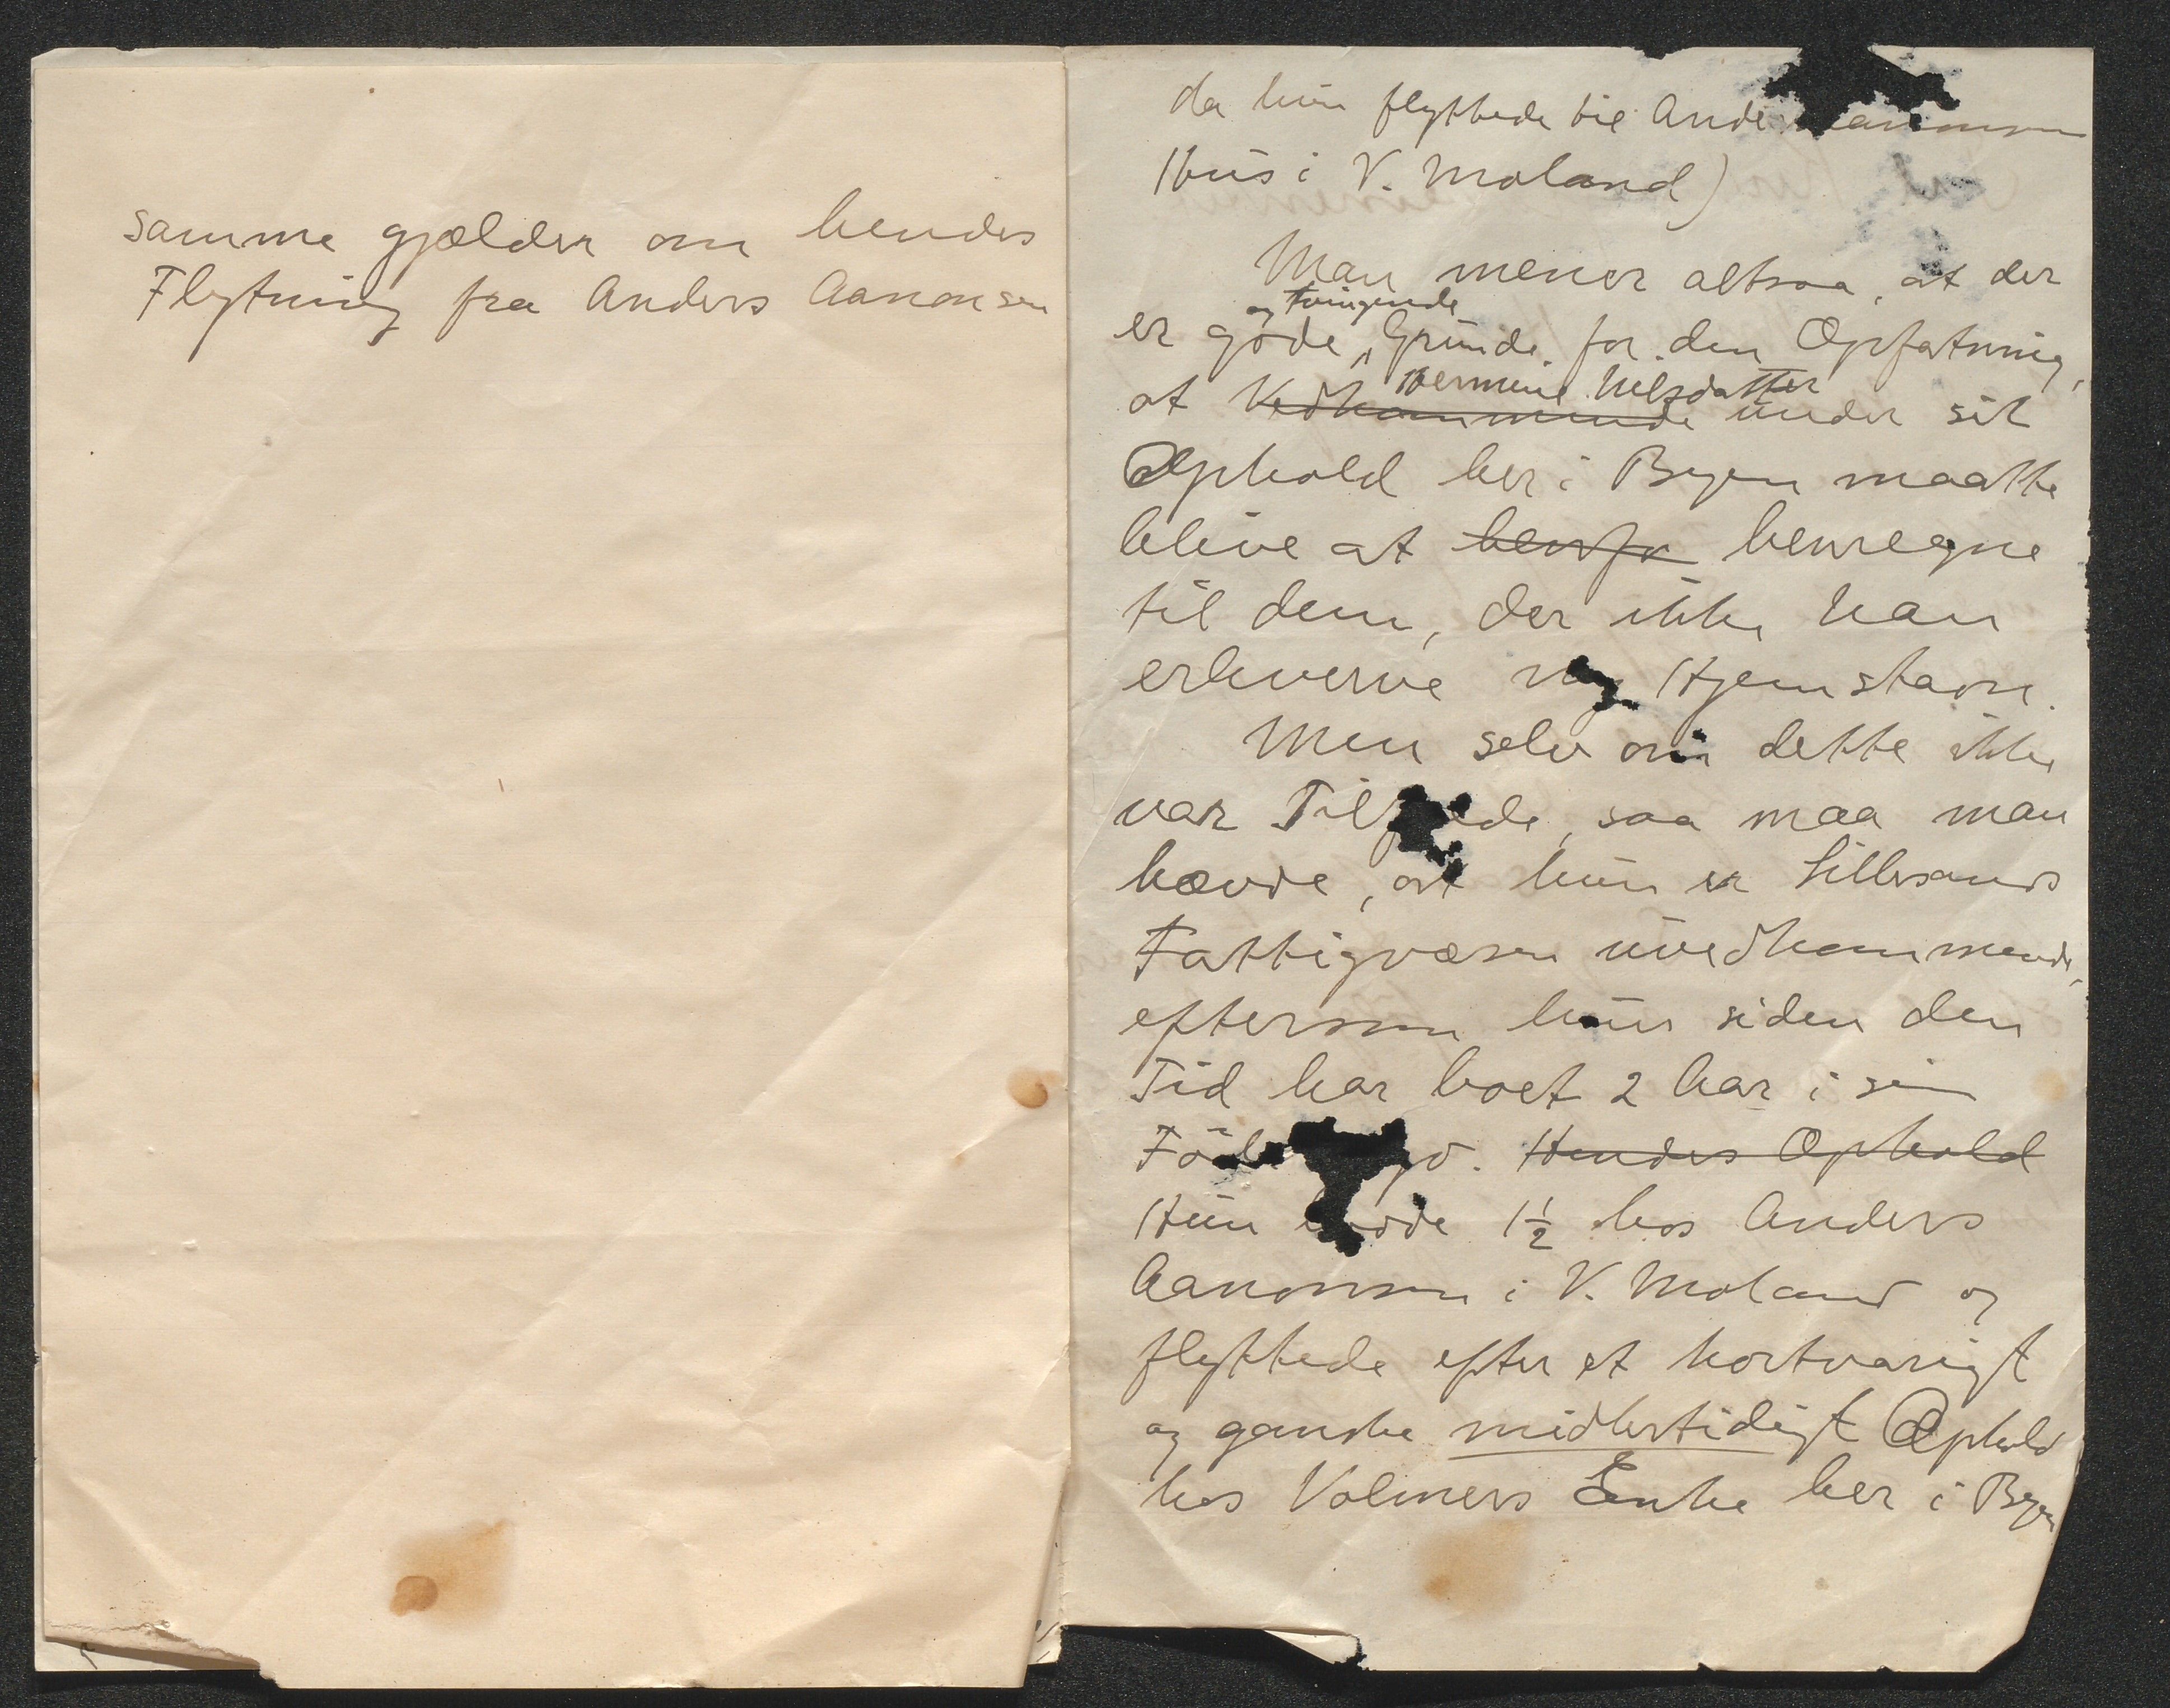 samme gjælder om hendes
Flytning fra Anders Aanonsen
da hun flyttede til Ande
Hus i V. Moland)
Man mener altsaa, at der
og tvingende
er gode Grunde for den Opfatning,
Hermine Nelsdatter
at Vedkommende under sit
Ophold her i Byen maatte
blive at henfø henregne
til dem, der ikke kan
erhverve ny Hjemstavn.
Men selv om dette ikke
var Tilfælde, saa maa man
hævde, at hun er Lillesands
Fattigvæsen uvedkommende,
eftersom hun siden den
Tid har boet 2 Aar i sin
Föde . Hendes Ophold
Hun boede 1½ hos Anders
Aanonsen i V. Moland og
flyttede efter et kortvarigt
og ganske midlertidigt Ophold
hos Volmers Enke her i Byen